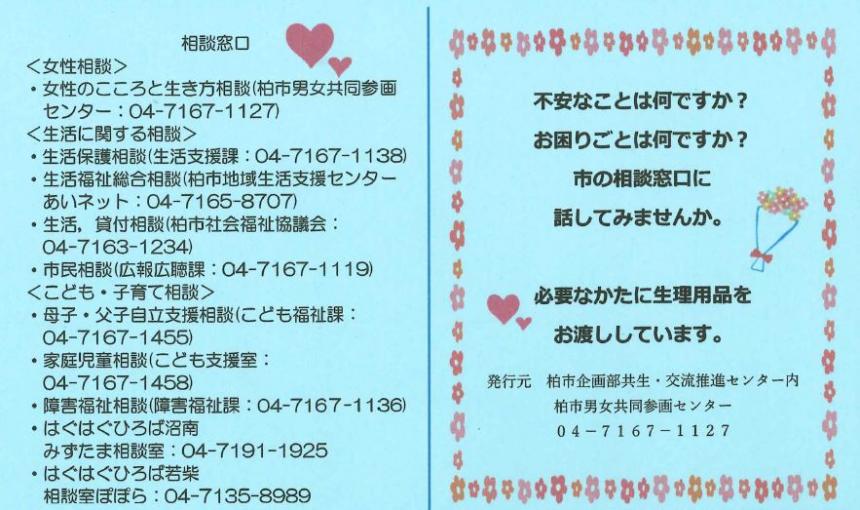 相談窓口
＜女性相談＞
・女性のこころと生き方相談(柏市男女共同参画
センター：04-7167-1127)
＜生活に関する相談＞
・生活保護相談(生活支援課：04-7167-1138)
・生活福祉総合相談(柏市地域生活支援センター
あいネット：04-7165-8707)
・生活，貸付相談(柏市社会福祉協議会：
04-7163-1234)
・市民相談(広報広聴課：04-7167-1119)
＜こども・子育て相談＞
・母子・父子自立支援相談(こども福祉課：
04-7167-1455)
・家庭児童相談(こども支援室：
04-7167-1458)
・障害福祉相談(障害福祉課：04-7167-1136)
・はぐはぐひろば沼南
みずたま相談室：04-7191-1925
・はぐはぐひろば若柴
相談室ぽぽら：04-7135-8989
不安なことは何ですか？
お困りごとは何ですか？
市の相談窓口に
話してみませんか。
必要なかたに生理用品を
お渡ししています。
発行元　柏市企画部共生・交流推進センター内
柏市男女共同参画センター
０４－７１６７－１１２７